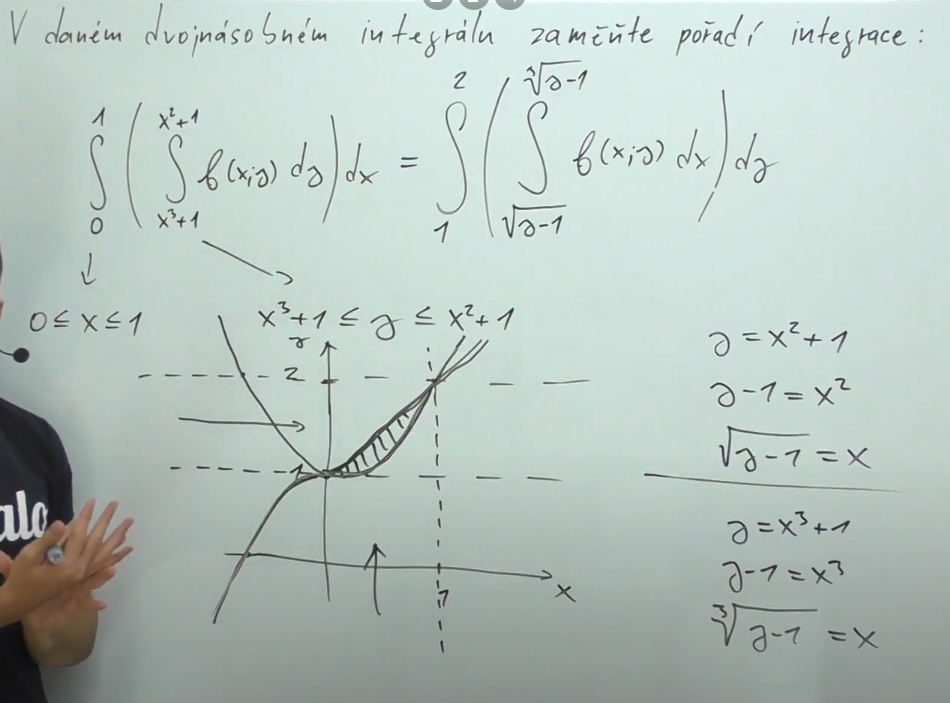 V daném dvojnásobném integrálu zaměňte pořadí integrace:
∫₀¹ ( ∫_{x³+1}^{x²+1} f(x,y) dy ) dx = ∫₁² ( ∫_{√(y-1)}^{∛(y-1)} f(x,y) dx ) dy
0 ≤ x ≤ 1
x³+1 ≤ y ≤ x²+1
y
2
1
x
1
y = x²+1
y-1 = x²
√(y-1) = x
y = x³+1
y-1 = x³
∛(y-1) = x
alo